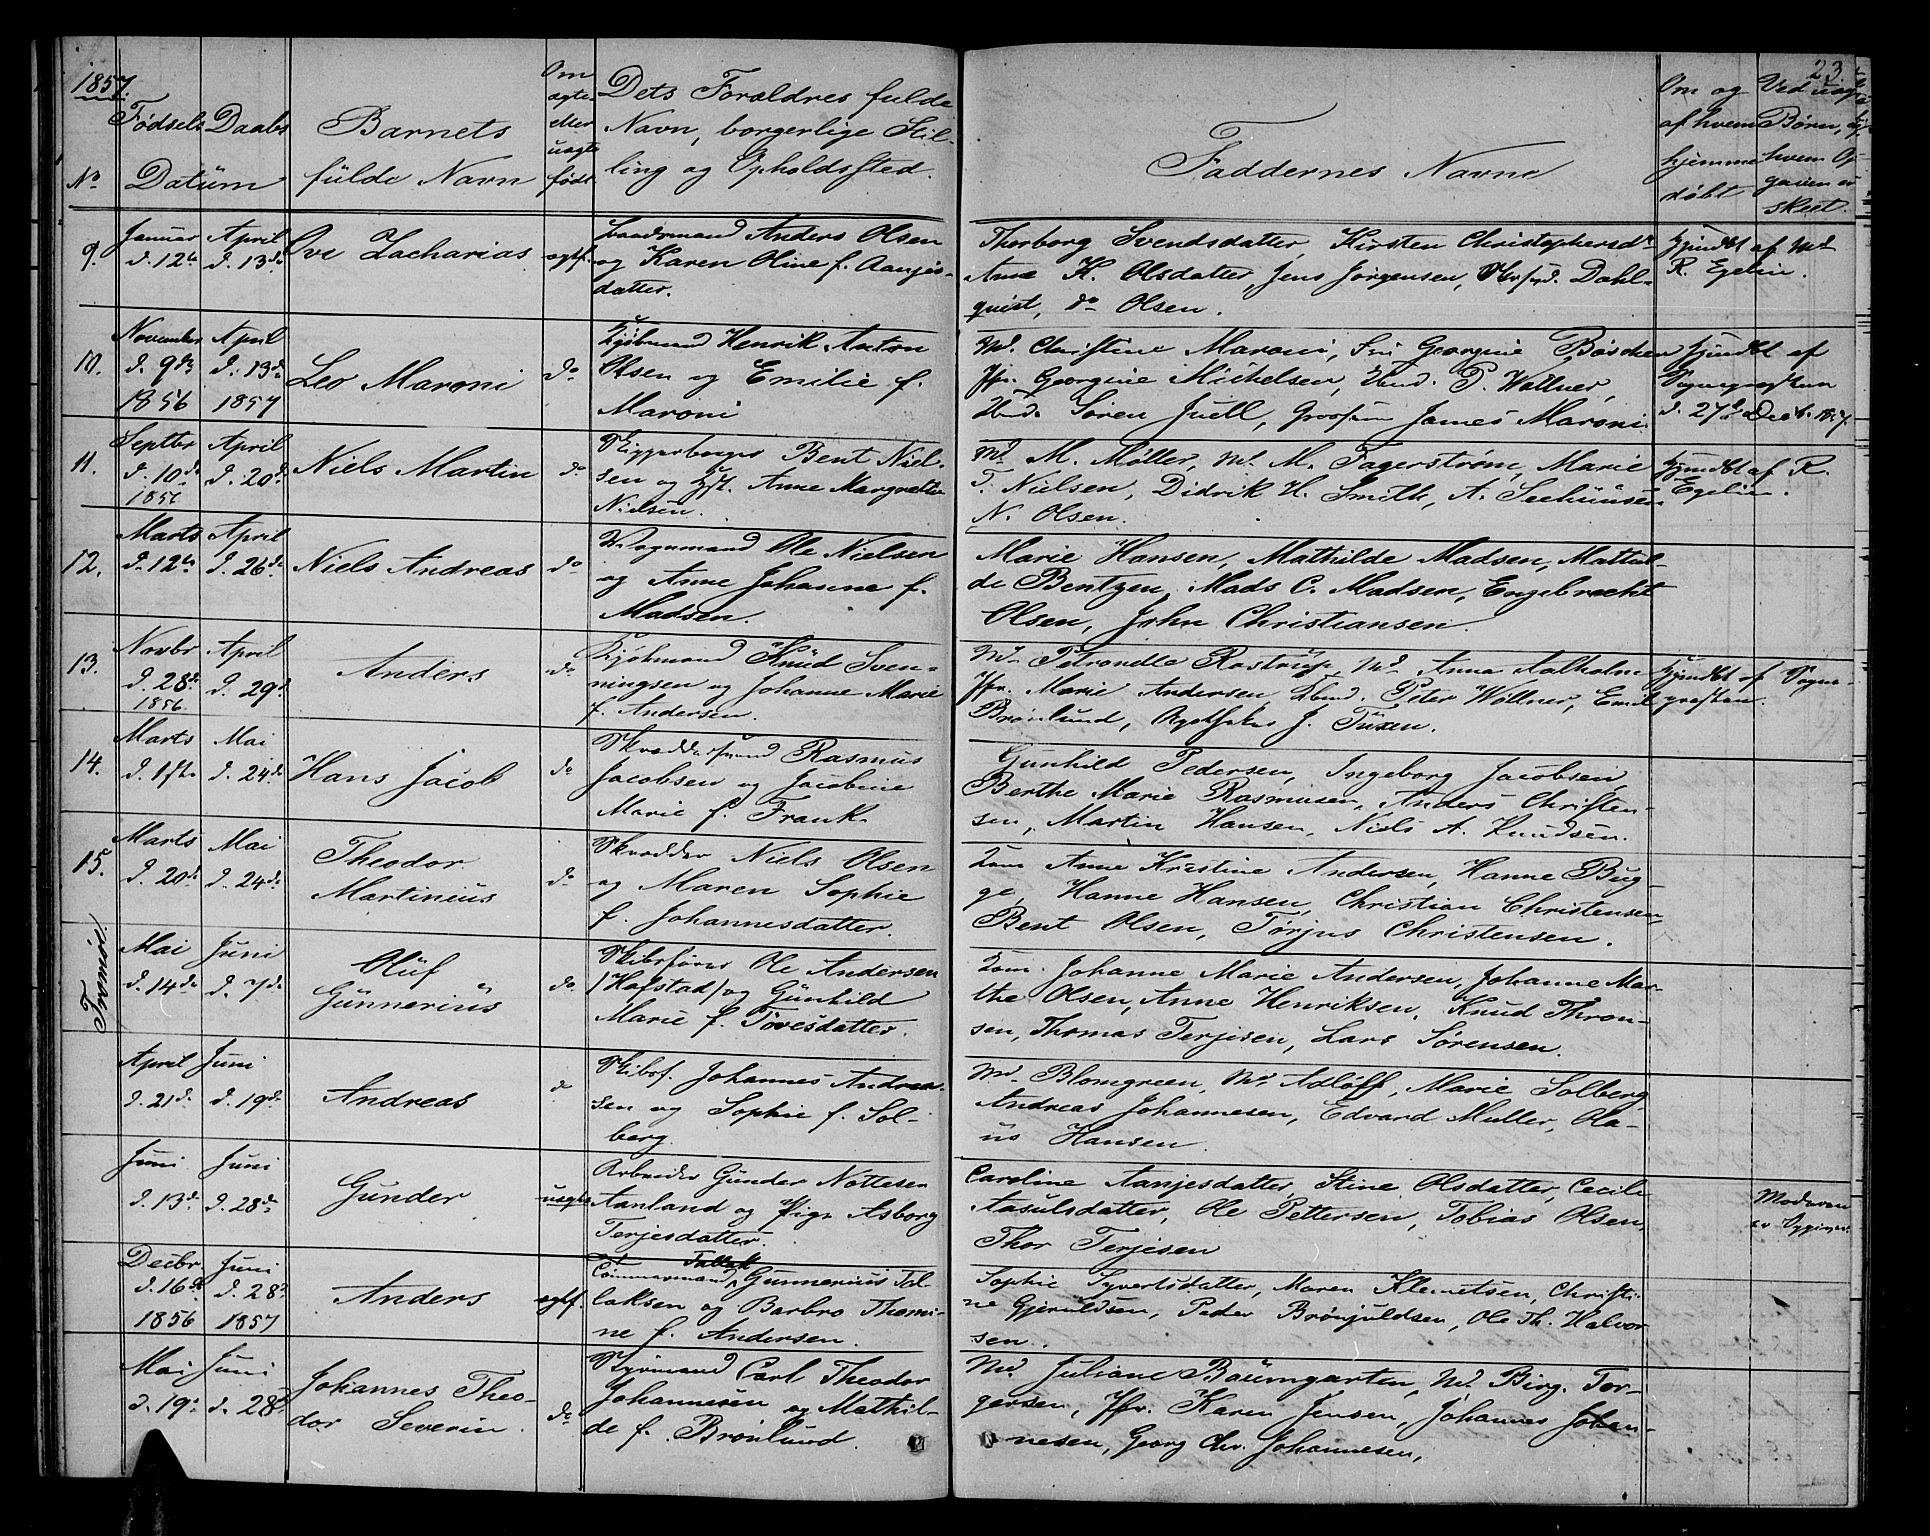 1857.
23.
Fødsels Daabs
Datum
No
Barnets
fulde Navn
Om
ægte
eller
uægte
født
Dets Forældres fulde
Navn, borgerlige Stil-
ling og Opholdssted.
Faddernes Navne
Om og
af hvem
hjemme
døbt
Ved uægte
Børn,
hvem Op-
gaven er
skeet.
9.
Januar April
d. 12te d. 13de
Ove Zacharias
ægtf.
Anders Olsen
og Karen Oline f. Aanjes-
datter.
Thorborg Svendsdatter, Kirsten Christophersdr
Anne K. Olsdatter, Jens Jörgensen, Dahl-
quist, do Olsen.
Hjmdbt af Md
R. Egelin.
10.
November April
d. 9de d. 13de
1856 1857
Leo Maroni
do
Kjøbmand Henrik Anton
Olsen og Emilie f.
Maroni
Md. Christine Maroni, Frü Georgine Böschen
Jfr. Georgine Michelsen, P. Wallner,
Sören Juell, James Maroni.
Hjmdbt af
Sognepresten
d. 27de Decb.
11.
Septbr April
d. 10de d. 20de
1856
Niels Martin
do
Skipperborger Bent Niel-
sen og Hst. Anne Margrethe
Nielsen.
Md M. Møller, Md. M. Fagerstrøm, Marie
T. Nielsen, Didrik H. Smith, A. Seehuusen
N. Olsen.
Hjmdbt af R.
Egelin.
12.
Marts April
d. 12te d. 26de
Niels Andreas
do
Vognmand Ole Nielsen
og Anne Johanne f.
Madsen.
Marie Hansen, Mathilde Madsen, Mathil-
de Bentzen, Mads C. Madsen, Engebrecht
Olsen, John Christiansen.
13.
Novbr April
d. 28de d. 29de
1856
Anders
do
Kjøbmand Knüd Sven-
ningsen og Johanne Marie
f. Andersen.
Md. Petronelle Rostrup, Md. Anna Aalholm
Jfr. Marie Andersen Peter Wöllner, Emil
Brönlund, Apotheker J. Tuxen.
Hjmdbt af Sogne-
presten.
14.
Marts Mai
d. 1ste d. 24de
Hans Jacob
do
Skræddersvend Rasmus
Jacobsen og Jacobine
Marie f. Frank
Gunhild Pedersen, Ingeborg Jacobsen,
Berthe Marie Rasmusen, Anders Christen-
sen, Martin Hansen, Niels A. Knudsen.
15.
Marts Mai
d. 20de d. 24de
Theodor
Martinius
do
Skrædder Niels Olsen
og Maren Sophie
f. Johannesdatter.
Anne Kristine Andersen, Hanne Bug-
ge, Hanne Hansen, Christian Christensen,
Bent Olsen, Törjus Christensen.
Tromøe.
Mai Juni
d. 14de d. 7de
Oluf
Gunnerius
do
Skibsfører Ole Andersen
/Hofstad/ og Günhild
Marie f. Tovesdatter.
Johanne Marie Andersen, Johanne Mar-
the Olsen, Anne Henriksen, Knud Thron-
sen, Thomas Terjesen, Lars Sørensen.
April Juni
d. 21de d. 19de
Andreas
do
Skibsf. Johannes Andrea-
sen og Sophie f. Sol-
berg.
Md. Blomgreen, Md. Adloff, Marie Solberg,
Andreas Johannesen, Edvard Muller, Ola-
us Hansen.
Juni Juni
d. 13de d. 28de
Gunder
uægte
Arbeider Gunder Nottesen
Aanland og Pige Asborg
Terjesdatter.
Caroline Aanjesdatter, Stine Olsdatter, Cecilie
Aasulsdatter, Ole Pettersen, Tobias Olsen,
Thor Terjesen
Moderen
er Opgiver.
Decbr. Juni
d. 16de d. 28de
1856 1857
Anders
ægtf.
Tallak
Tømmermand Gunnerius Tal-
laksen og Barbro Thomi-
ne f. Andersen.
Sophie Syvertsdatter, Maren Klemetsen, Christi-
ne Gjeruldsen, Peder Brönjuldsen, Ole Th. Halvor-
sen.
Mai Juni
d. 19de d. 28de
Johannes Theo-
dor Severin
do
Styrmand Carl Theodor
Johannesen og Mathil-
de f. Brönlund.
Md. Juliane Baumgarten, Md. Birg. Tor-
gersen, Jfr. Karen Jensen, Johannes Johan-
nesen, Georg Chr. Johannesen,